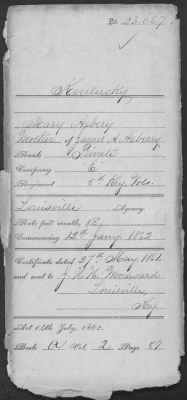 No. 23.067
Kentucky
Mary Asbery
Mother of James A. Asberry
Rank Private
Company "E"
Regiment 5th Ky. Vols.
Louisville Agency.
Rate per month, $8
Commencing 12th Jany 1862
Certificate dated 27th May 1864.
and sent to J. H. H. Woodward
Louisville
Ky.
Act 14th July, 1862.
Book A Vol. 2 Page 87